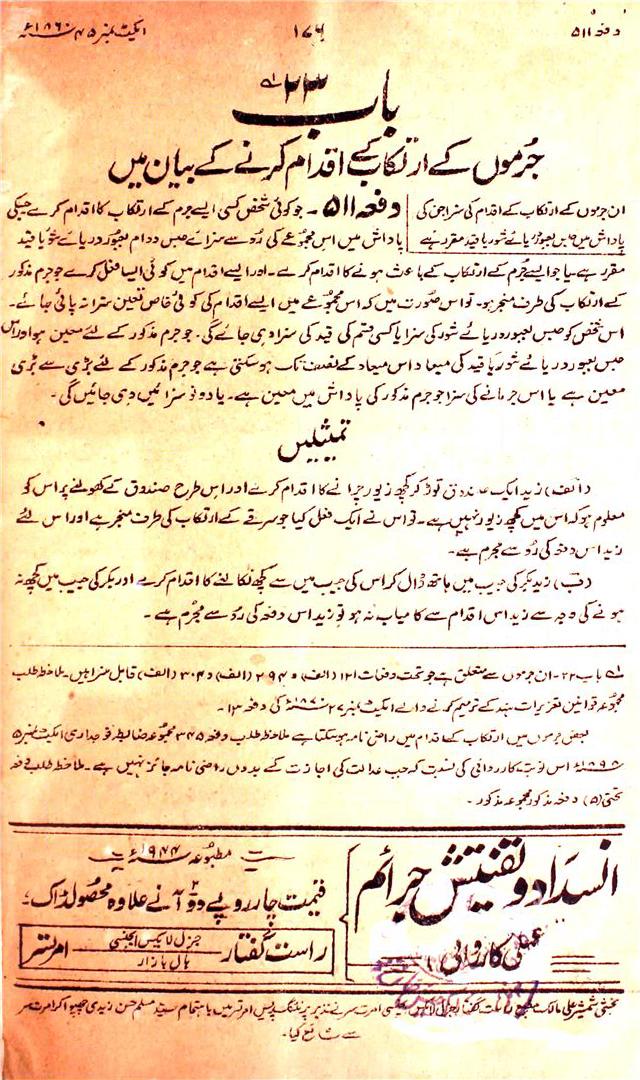 دفعہ ۵۱۱
۱۷۶
ایکٹ نمبر ۴۵ ۱۸۶۰ء
باب ۲۳
جُرموں کے ارتکاب کے اقدام کرنے کے بیان میں
ان جرموں کے ارتکاب کے اقدام کی سزا جن کی
پاداش میں حبس بعبور دریائے شور یا قید مقرر ہے
دفعہ ۵۱۱ ۔ جو کوئی شخص کسی ایسے جرم کے ارتکاب کا اقدام کرے جسکی
پاداش میں اس مجموعے کی رُو سے سزائے حبس دوام بعبور دریائے شور یا قید
مقرر ہے۔ یا جو ایسے جُرم کے ارتکاب کے باعث ہونے کا اقدام کرے۔ اور ایسے اقدام میں کوئی ایسا فعل کرے جو جرم مذکور
کے ارتکاب کی طرف منجر ہو۔ تو اس صورت میں کہ اس مجموعے میں ایسے اقدام کی کوئی خاص تعیین سزا نہ پائی جائے۔
اس شخص کو حبس بعبور دریائے شور کی سزا یا کسی قسم کی قید کی سزا دی جائے گی۔ جو جرم مذکور کے لئے معین ہو اور اس
حبس بعبور دریائے شور یا قید کی میعاد اس میعاد کے نصف تک ہو سکتی ہے جو جرم مذکور کے لئے بڑی سے بڑی
معین ہے یا اس جرمانے کی سزا جو جرم مذکور کی پاداش میں معین ہے۔ یا دونو سزائیں دی جائیں گی۔
تمثیلیں
(الف) زید ایک صندوق توڑ کر کچھ زیور چرانے کا اقدام کرے اور اس طرح صندوق کے کھولنے پر اس کو
معلوم ہو کہ اس میں کچھ زیور نہیں ہے۔ تو اس نے ایک فعل کیا جو سرقے کے ارتکاب کی طرف منجر ہے اور اس لئے
زید اس دفعہ کی رُو سے مجرم ہے۔
(ب) زید بکر کی جیب میں ہاتھ ڈال کر اس کی جیب میں سے کچھ نکالنے کا اقدام کرے اور بکر کی جیب میں کچھ نہ
ہونے کی وجہ سے زید اس اقدام سے کامیاب نہ ہو تو زید اس دفعہ کی رُو سے مجرم ہے۔
باب ۲۳۔ ان جرموں سے متعلق ہے جو تحت دفعات ۱۲۱ (الف) و ۲۹۴ (الف) و ۳۰۴ (الف) قابل سزا ہیں۔ ملاحظہ طلب
مجموعہ قوانین تعزیرات ہند کے ترمیم کرنے والے ایکٹ نمبر ۲۷ ۱۸۷۰ء کی دفعہ ۱۳۔
بعض جرموں میں ارتکاب کے اقدام میں راضی نامہ ہو سکتا ہے ملاحظہ طلب دفعہ ۳۴۵ مجموعہ ضابطہ فوجداری ایکٹ نمبر ۵
۱۸۹۸ء اس نوبت کارروائی کی نسبت کہ جب عدالت کی اجازت کے بدوں راضی نامہ جائز نہیں ہے۔ ملاحظہ طلب دفعہ
تحتی (۵) دفعہ مذکور مجموعہ مذکور۔
انسداد و تفتیش جرائم
عملی کارروائی
مطبوعہ ۱۹۴۴ء
قیمت چار روپے دو آنے علاوہ محصول ڈاک۔
راست گفتار
جنرل لا بکس ایجنسی
ہال بازار
امرتسر
نذیر پرنٹنگ پریس امرتسر میں باہتمام سید مسلم حسن زیدی چھپوا کر امرتسر
سے شائع کیا۔